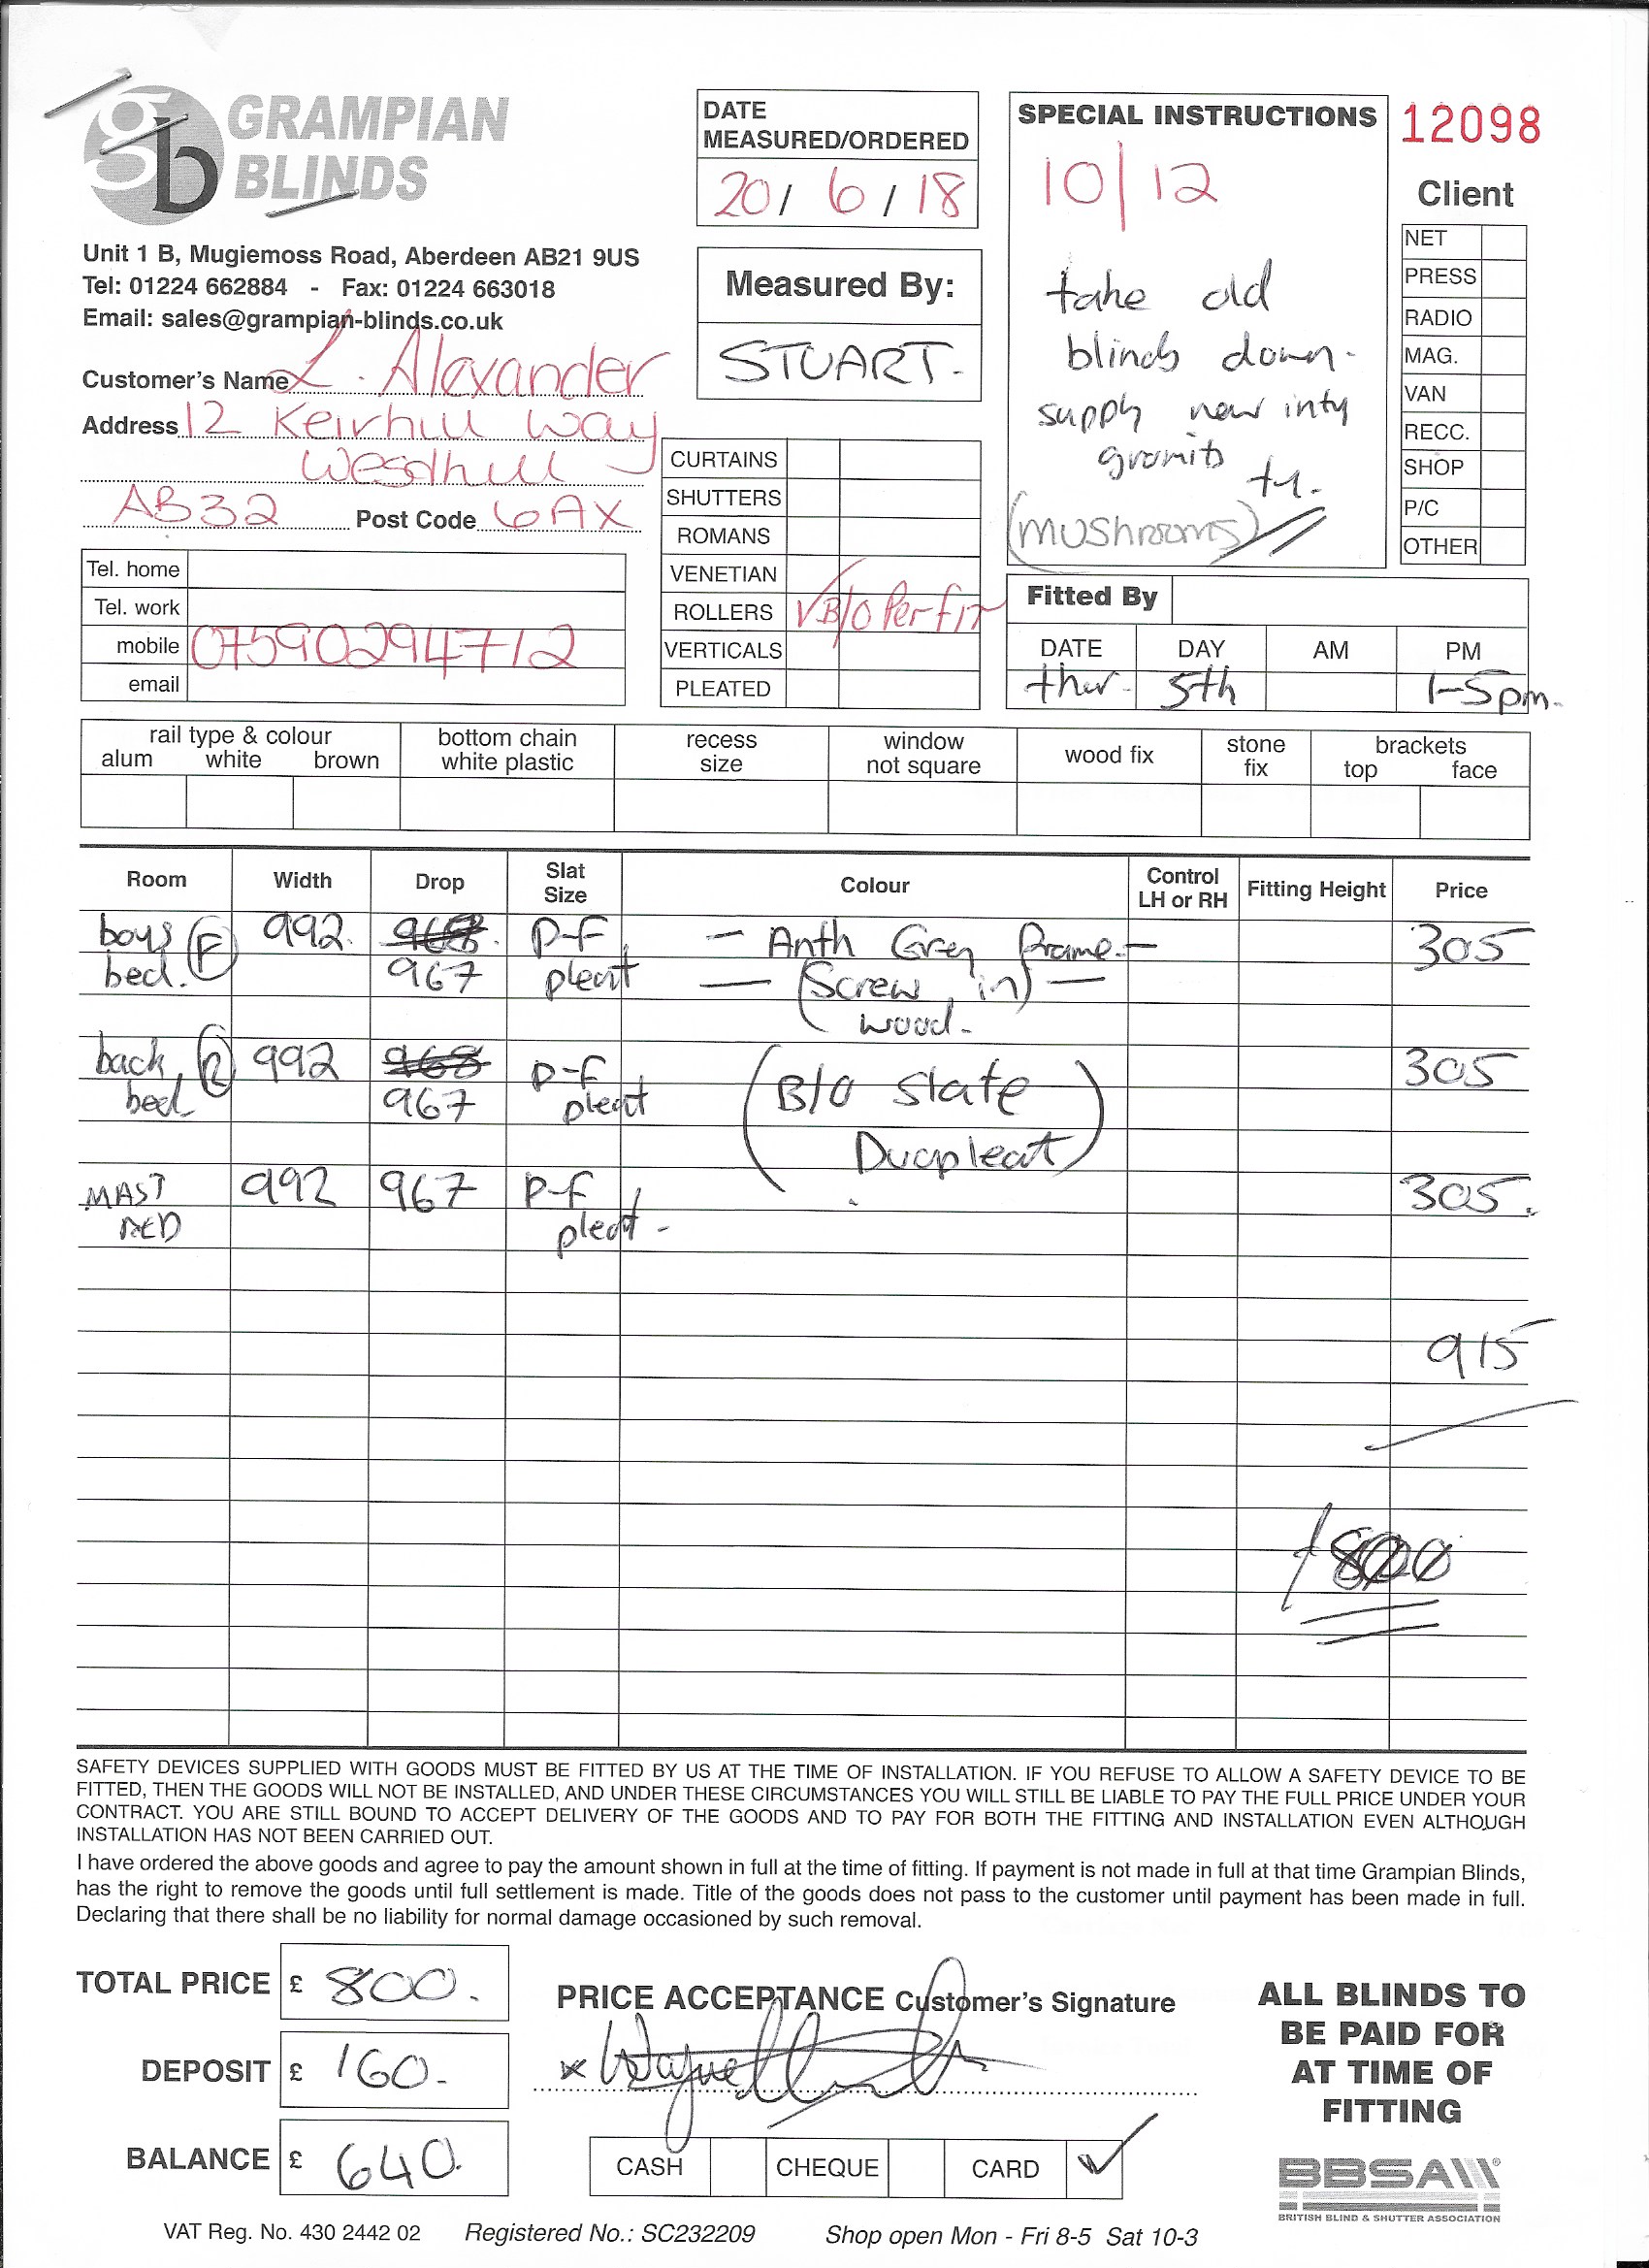 gb GRAMPIAN BLINDS
Unit 1 B, Mugiemoss Road, Aberdeen AB21 9US
Tel: 01224 662884 - Fax: 01224 663018
Email: sales@grampian-blinds.co.uk
Customer's Name L. Alexander
Address 12 Keirhill Way
Westhill
AB32 Post Code 6AX
Tel. home
Tel. work
mobile 07590294712
email
DATE
MEASURED/ORDERED
20/ 6 / 18
Measured By:
STUART.
CURTAINS
SHUTTERS
ROMANS
VENETIAN
ROLLERS B/O Perfit
VERTICALS
PLEATED
SPECIAL INSTRUCTIONS
10/12
take old
blinds down.
supply new
(mushrooms)
12098
Client
NET
PRESS
RADIO
MAG.
VAN
RECC.
SHOP
P/C
OTHER
Fitted By
DATE DAY AM PM
thur. 5th 1-5pm.
rail type & colour
alum white brown
bottom chain
white plastic
recess
size
window
not square
wood fix
stone
fix
brackets
top face
Room Width Drop Slat Size Colour Control LH or RH Fitting Height Price
boys (F) 992. 968. P-F - Anth Grey frame. - 305
bed. 967 pleat - (Screw in) -
wood.
back (R) 992 968 P-F (B/O Slate 305
bed 967 pleat Duopleat)
MAST 992 967 P-F 305.
BED pleat -
915
£800
SAFETY DEVICES SUPPLIED WITH GOODS MUST BE FITTED BY US AT THE TIME OF INSTALLATION. IF YOU REFUSE TO ALLOW A SAFETY DEVICE TO BE
FITTED, THEN THE GOODS WILL NOT BE INSTALLED, AND UNDER THESE CIRCUMSTANCES YOU WILL STILL BE LIABLE TO PAY THE FULL PRICE UNDER YOUR
CONTRACT. YOU ARE STILL BOUND TO ACCEPT DELIVERY OF THE GOODS AND TO PAY FOR BOTH THE FITTING AND INSTALLATION EVEN ALTHOUGH
INSTALLATION HAS NOT BEEN CARRIED OUT.
I have ordered the above goods and agree to pay the amount shown in full at the time of fitting. If payment is not made in full at that time Grampian Blinds,
has the right to remove the goods until full settlement is made. Title of the goods does not pass to the customer until payment has been made in full.
Declaring that there shall be no liability for normal damage occasioned by such removal.
TOTAL PRICE £ 800.
DEPOSIT £ 160.
BALANCE £ 640.
PRICE ACCEPTANCE Customer's Signature
x
CASH CHEQUE CARD ✓
ALL BLINDS TO
BE PAID FOR
AT TIME OF
FITTING
BBSA
BRITISH BLIND & SHUTTER ASSOCIATION
VAT Reg. No. 430 2442 02 Registered No.: SC232209 Shop open Mon - Fri 8-5 Sat 10-3